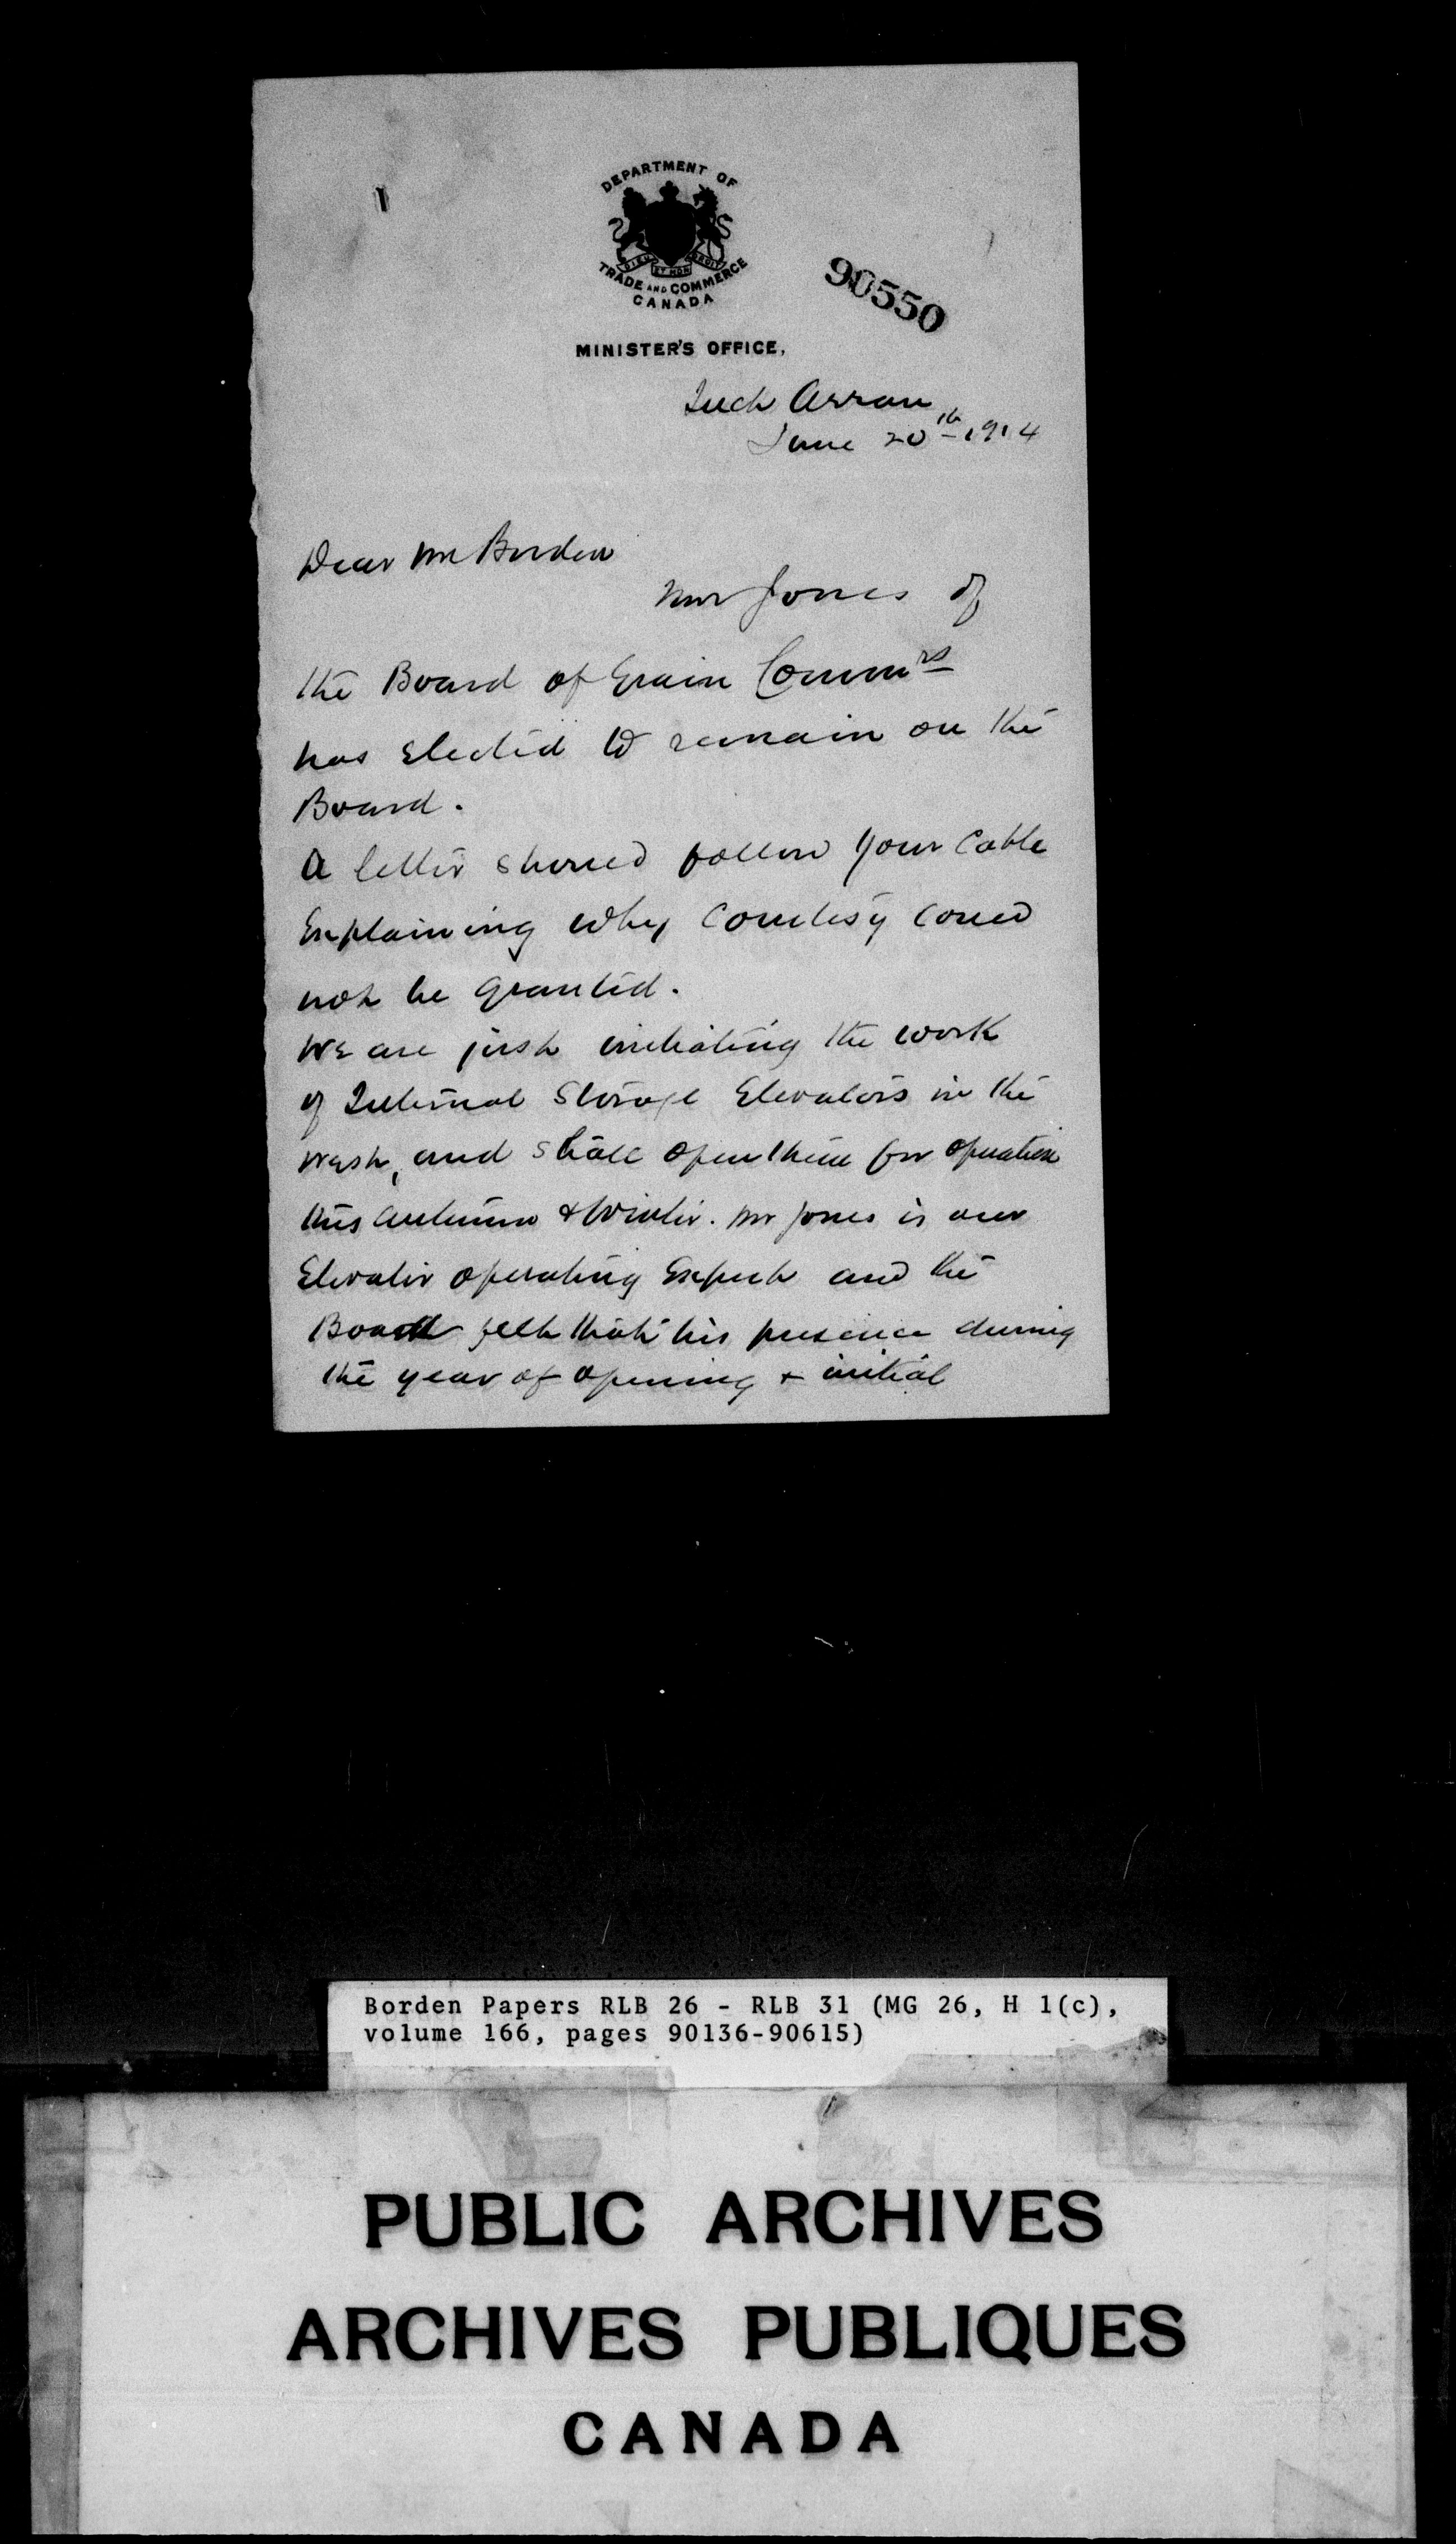 DEPARTMENT OF
DIEU ET MON DROIT
TRADE AND COMMERCE
CANADA
90550
MINISTER'S OFFICE,
Inch Arran
June 20th 1914
Dear Mr Borden
Mr Jones of
the Board of Grain Commrs
has elected to remain on the
Board.
A letter should follow your Cable
Explaining why Courtesy could
not be granted.
We are just initiating the work
of Internal Storage Elevators in the
West, and shall open them for operation
this Autumn & Winter. Mr Jones is our
Elevator operating Expert and the
Board felt that his presence during
the year of opening & initial
Borden Papers RLB 26 - RLB 31 (MG 26, H 1(c),
volume 166, pages 90136-90615)
PUBLIC ARCHIVES
ARCHIVES PUBLIQUES
CANADA